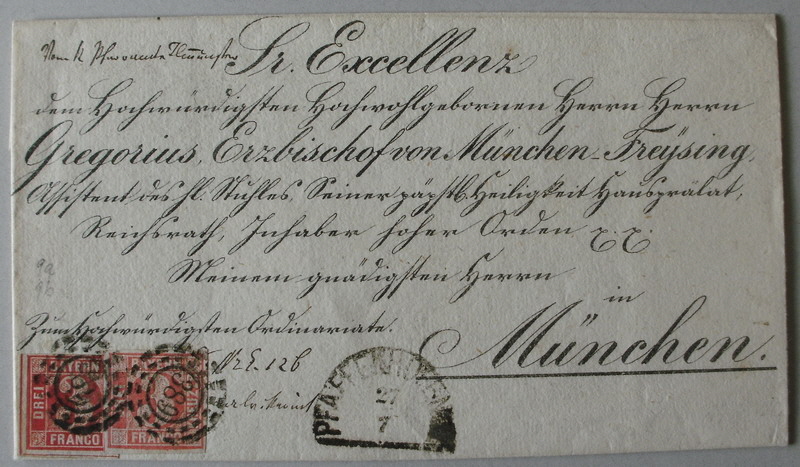 Sr. Excellenz
dem Hochwürdigsten Hochwohlgebornen Herrn Herrn
Gregorius, Erzbischof von München-Freÿsing,
Assistent des hl. Stuhles, Seiner päpstl. Heiligkeit Hausprälat,
Reichsrath, Inhaber hoher Orden
Meinem gnädigsten Herrn
in
München.
Zum Hochwürdigsten Ordinariate.
9a
9b
126
BAYERN
DREI
FRANCO
FRANCO
PFAFFENHOFEN
27
7